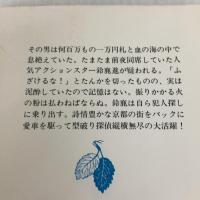 その男は何百万もの一万円札と血の海の中で
息絶えていた。たまたま前夜同席していた人
気アクションスター鈴鹿進が疑われる。「ふ
ざけるな!」とたんかを切ったものの、実は
泥酔していたので記憶はない。振りかかる火
の粉は払わねばならぬ。鈴鹿は自ら犯人探し
に乗り出す。詩情豊かな京都の街をバックに
愛車を駆って型破り探偵縦横無尽の大活躍!